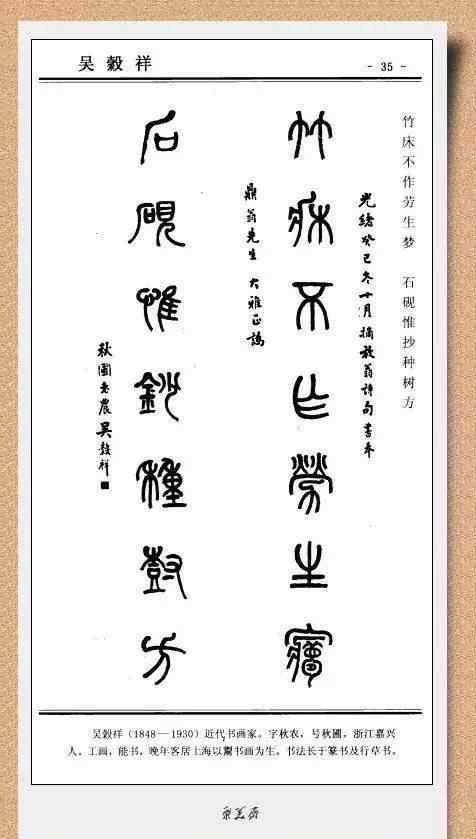 吴榖祥
- 35 -
竹床不作劳生梦 石砚惟抄种树方
光緒癸巳冬十月摘放翁詩句書奉
竹牀不作勞生夢
鼎翁先生 大雅正譌
石硯惟鈔種樹方
秋圃老農吳榖祥
吴榖祥(1848—1930)近代书画家。字秋农,号秋圃,浙江嘉兴
人。工画,能书,晚年客居上海以鬻书画为生。书法长于篆书及行草书。